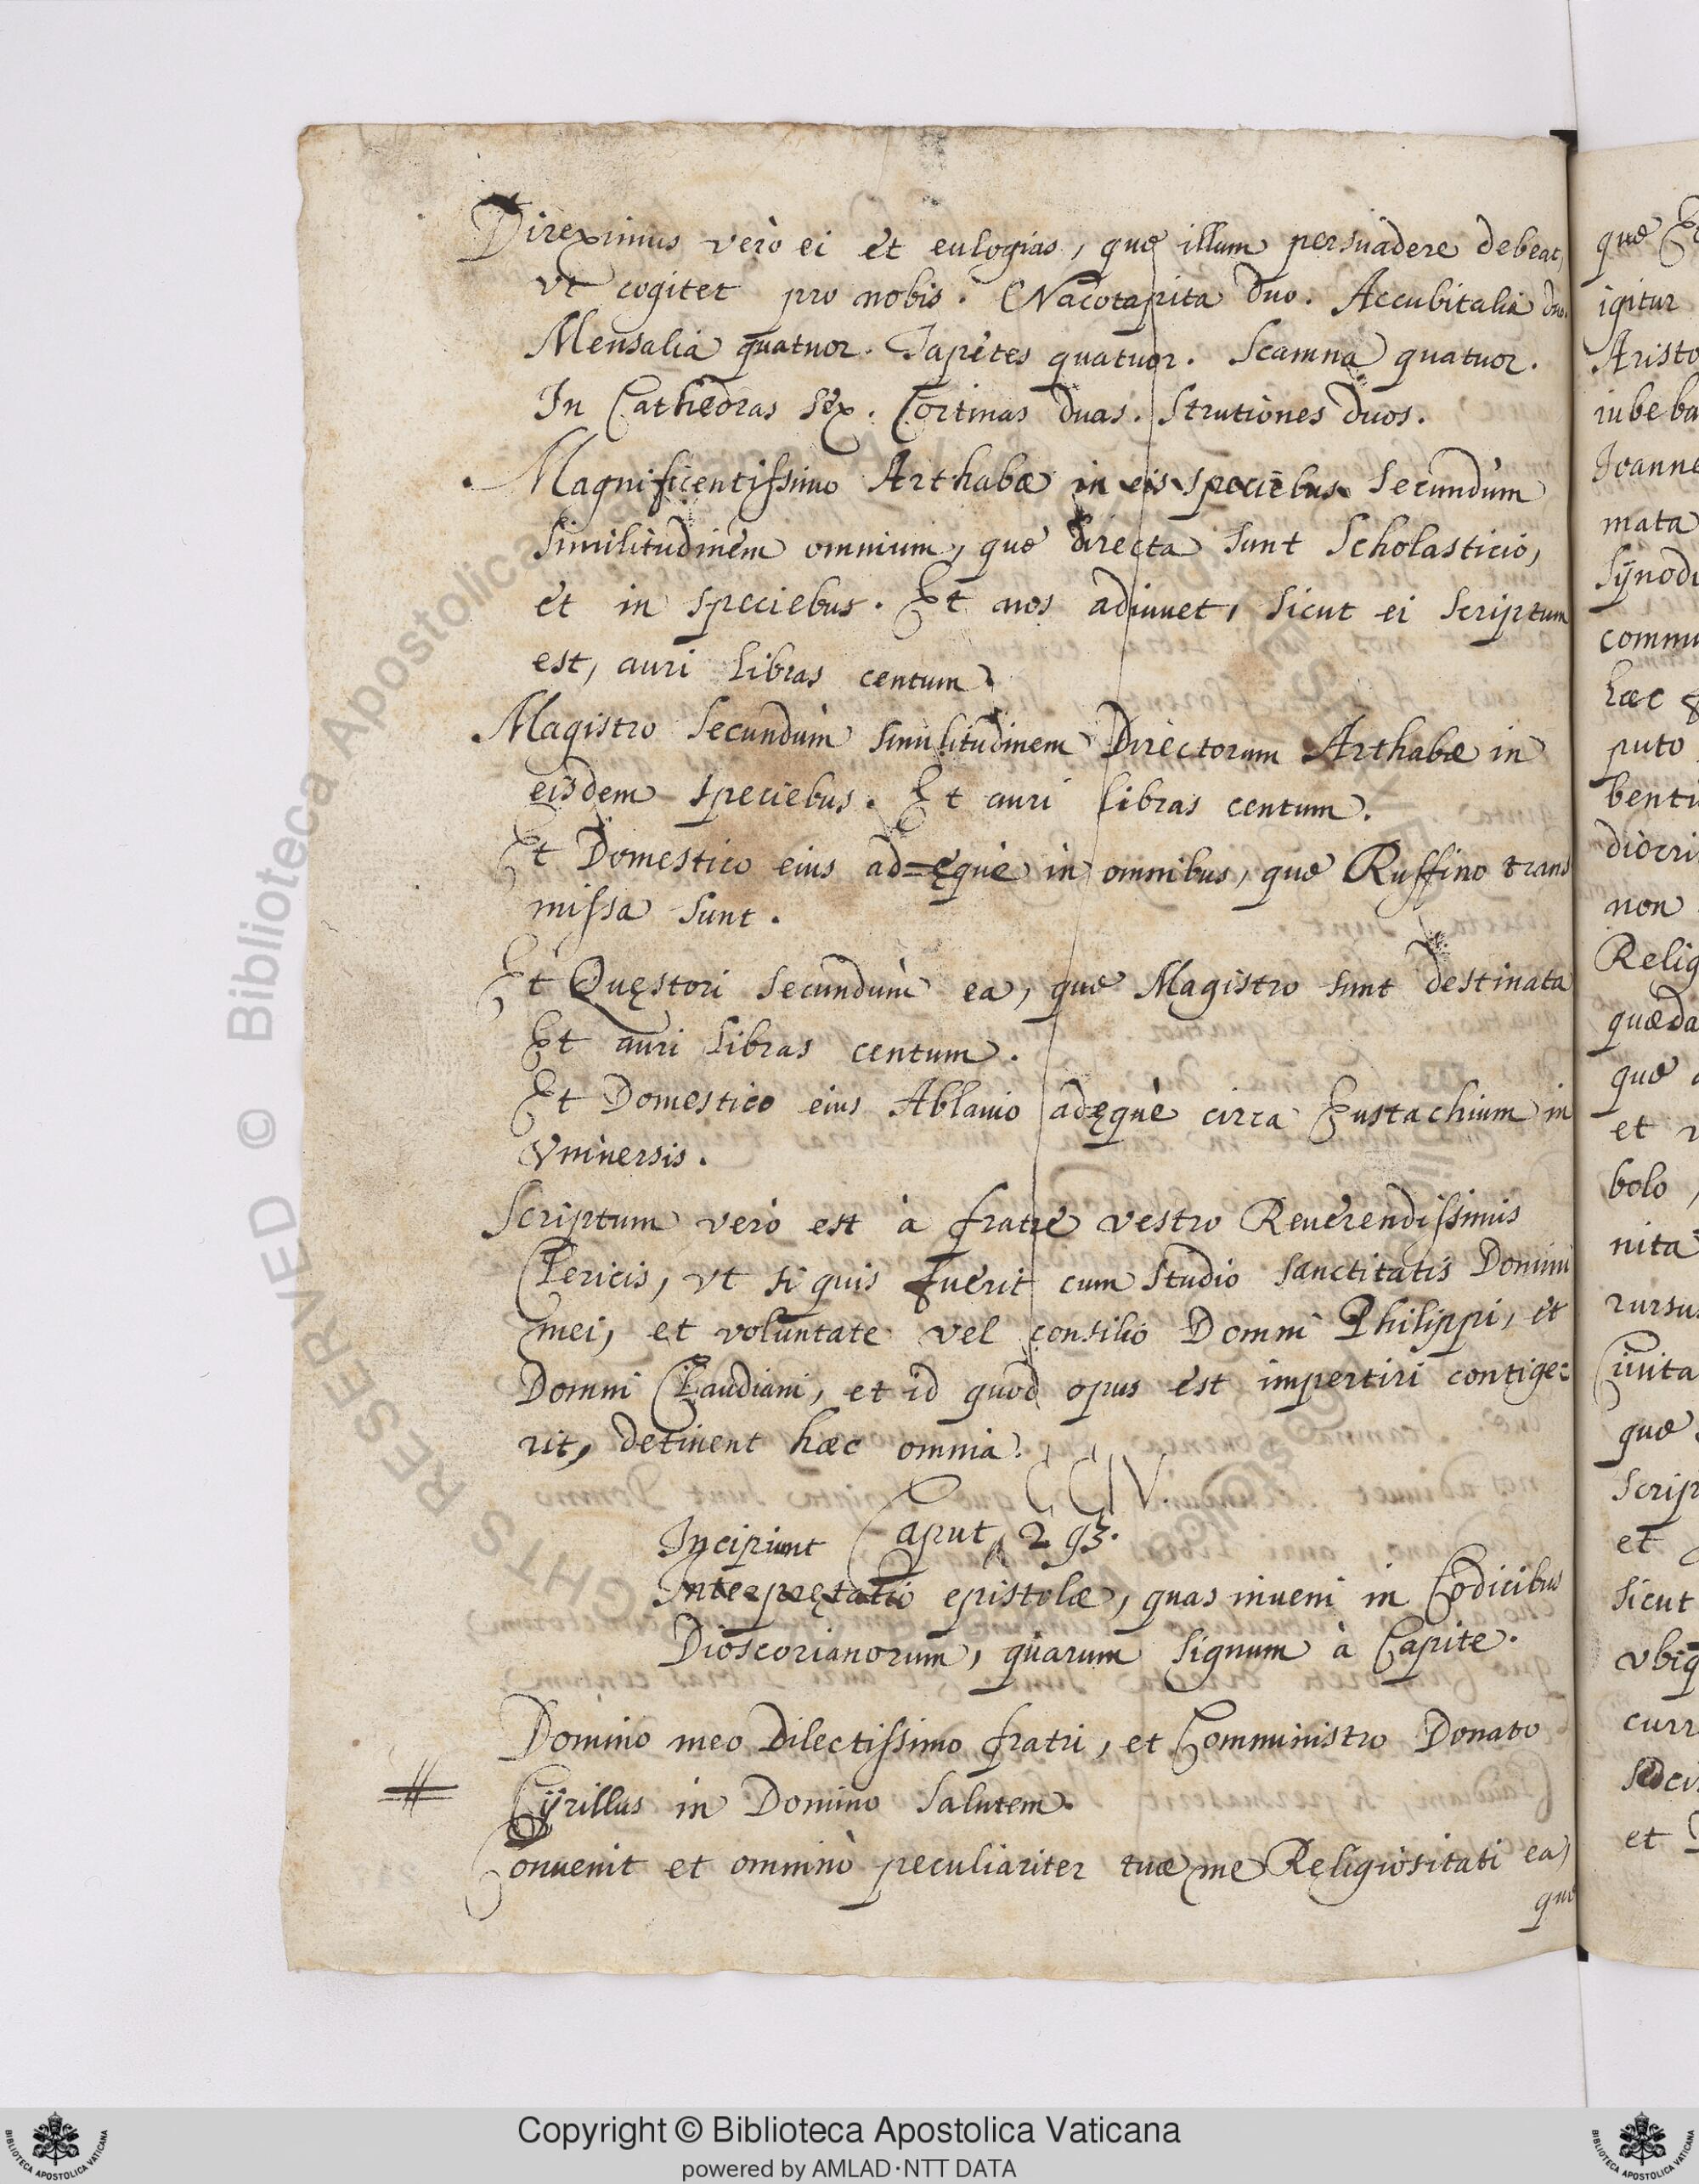 Direximus verò ei et eulogias, quę illum persuadere debeat,
vt cogitet pro nobis. Nacotapita duo. Accubitalia duo.
Mensalia quatuor. Tapètes quatuor. Scamna quatuor.
In Cathedras sex. Cortinas duas. Strutiones duos.
Magnificentissimo Arthabæ in eis speciebus secundùm
similitudinem omnium, quæ directa sunt Scholasticio,
et in speciebus. Et nos adiuuet, sicut ei scriptum
est, auri libras centum.
Magistro secundùm similitudinem Directorum Arthabæ in
eisdem speciebus. Et auri libras centum.
Et Domestico eius ad=ęquè in omnibus, quæ Ruffino trans
missa sunt.
Et Quęstori secundùm ea, quæ Magistro sunt destinata
Et auri libras centum.
Et Domestico eius Ablauio adęquè circa Eustachium in
Vniuersis.
Scriptum verò est à fratre vestro Reuerendissimis
Clericis, vt si quis fuerit cum studio sanctitatis Domini
mei, et voluntate vel consilio Domni Philippi, et
Domni Claudiani, et id quod opus est impertiri contige=
rit, detinent hæc omnia.
CCIV.
Incipiunt Caput 293.
Interpretatio epistolæ, quas inueni in Codicibus
Dioscorianorum, quarum signum à Capite.
Domino meo Dilectissimo fratri, et Comministro Donato
Cÿrillus in Domino Salutem.
Conuenit et omninò peculiariter tuæ me Religiositati ea,
quæ
quæ
igitur
Aristo
iubeba
Joanne
mata
Sÿnodi
commu
hæc
puto
bentu
diocri
non
Relig
quæda
quæ
et
bolo,
nita
rursus
Ciuita
quæ
script
et
sicut
vbiq
curr
sed
et
© Biblioteca Apostolica Vaticana
RESERVED
RIGHTS
Copyright © Biblioteca Apostolica Vaticana
powered by AMLAD·NTT DATA
BIBLIOTECA APOSTOLICA VATICANA
BIBLIOTECA APOSTOLICA VATICANA